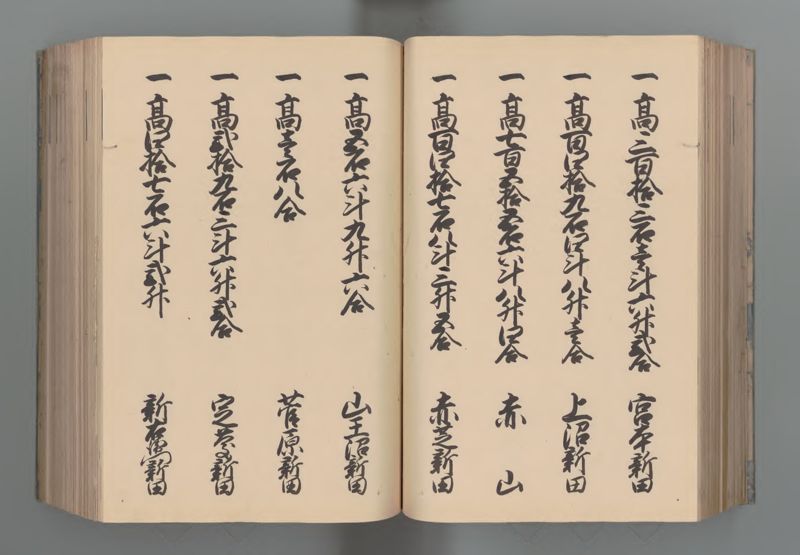 一 高三百拾三石壱斗六升弐合 宮本新田
一 高百四拾九石四斗八升壱合 上沼新田
一 高七百五拾五石六斗八升四合 赤山
一 高百四拾七石八斗三升五合 赤芝新田
一 高五石六斗九升六合 山王沼新田
一 高壱石八合 菅原新田
一 高弐拾九石三斗六升弐合 新田
一 高四拾七石六斗弐升 新右衛門新田